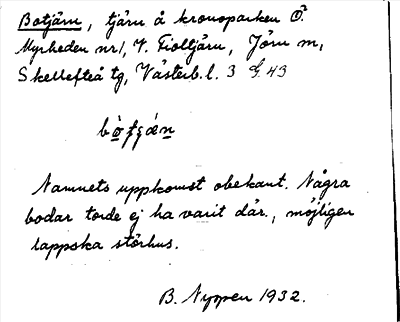 Botjärn, tjärn å kronoparken Ö.
Myrheden nr 1, V. Fioltjärn, Jörn m,
Skellefteå tg, Västerb. l. 3 G. 43
Namnets uppkomst obekant. Några
bodar torde ej ha varit där, möjligen
lappska störhus.
B. Nyppen 1932.